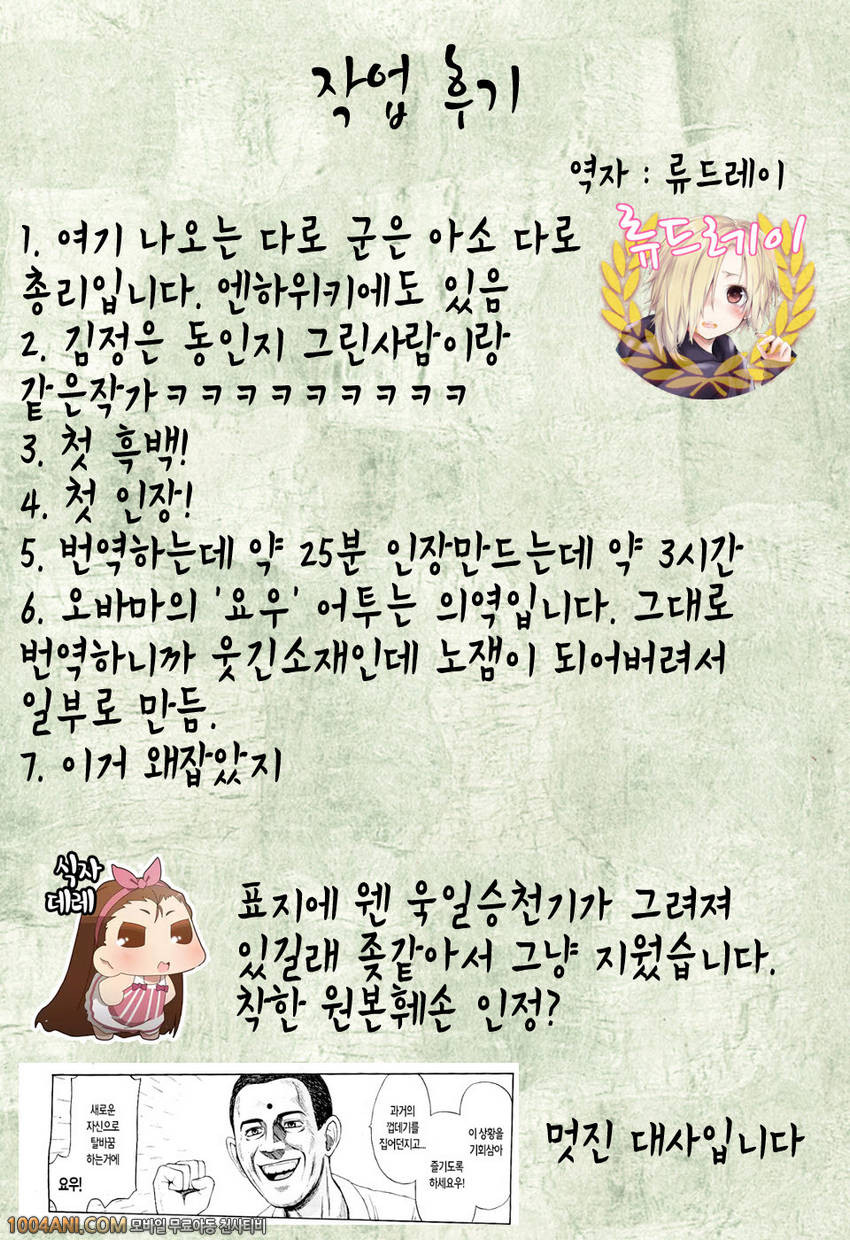 작업 후기
역자 : 류드레이
류드레이
1. 여기 나오는 다로 군은 아소 다로
총리입니다. 엔하위키에도 있음
2. 김정은 동인지 그린사람이랑
같은작가ㅋㅋㅋㅋㅋㅋㅋㅋㅋ
3. 첫 흑백!
4. 첫 인장!
5. 번역하는데 약 25분 인장만드는데 약 3시간
6. 오바마의 '요우' 어투는 의역입니다. 그대로
번역하니까 웃긴소재인데 노잼이 되어버려서
일부로 만듬.
7. 이거 왜잡았지
식자
데레
표지에 웬 욱일승천기가 그려져
있길래 좆같아서 그냥 지웠습니다.
착한 원본훼손 인정?
이 상황을
기회삼아
즐기도록
하세요우!
과거의
껍데기를
집어던지고...
새로운
자신으로
탈바꿈
하는거에
요우!
멋진 대사입니다
1004ANI.COM 모바일 무료야동 천사티비